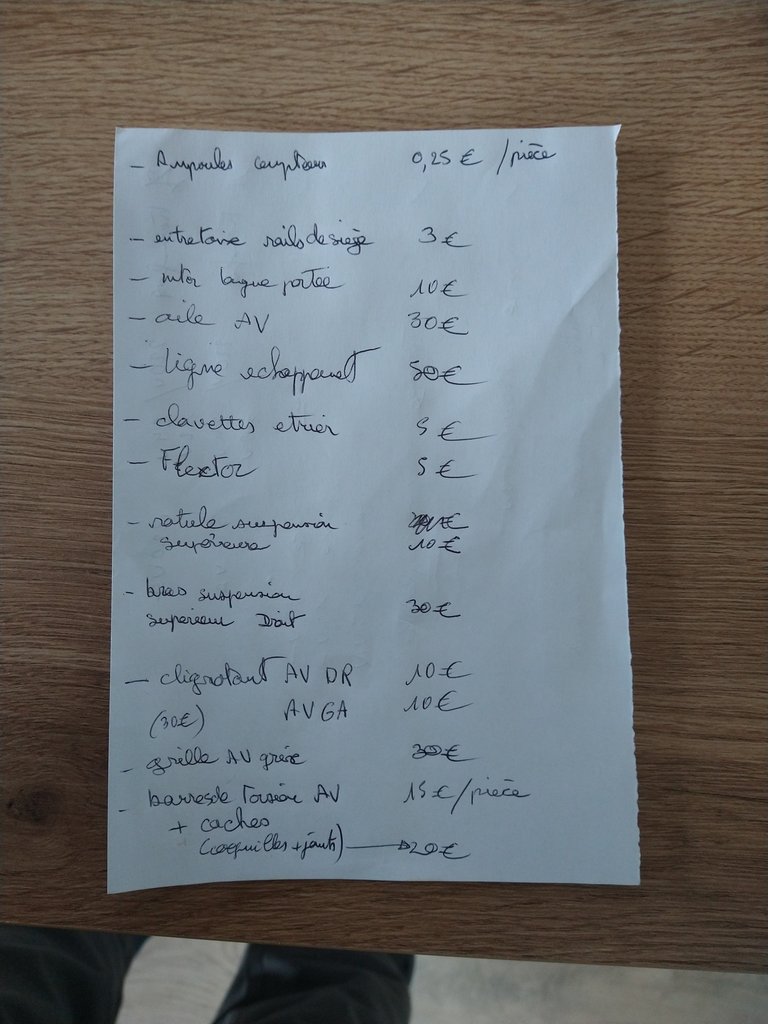 - Ampoules compteur 0,25 € /pièce
- entretoise rails de siège 3 €
- mtor bague portée 10 €
- aile AV 30 €
- ligne echappement 50 €
- clavettes etrier 5 €
- Flector 5 €
- rotule suspension
superieure 10 €
- bras suspension
superieur Droit 30 €
- clignotant AV DR 10 €
(30€) AV GA 10 €
- grille AV grise 30 €
- barres de torsion AV 15 € /pièce
+ caches
(coquilles + joints) → 20 €